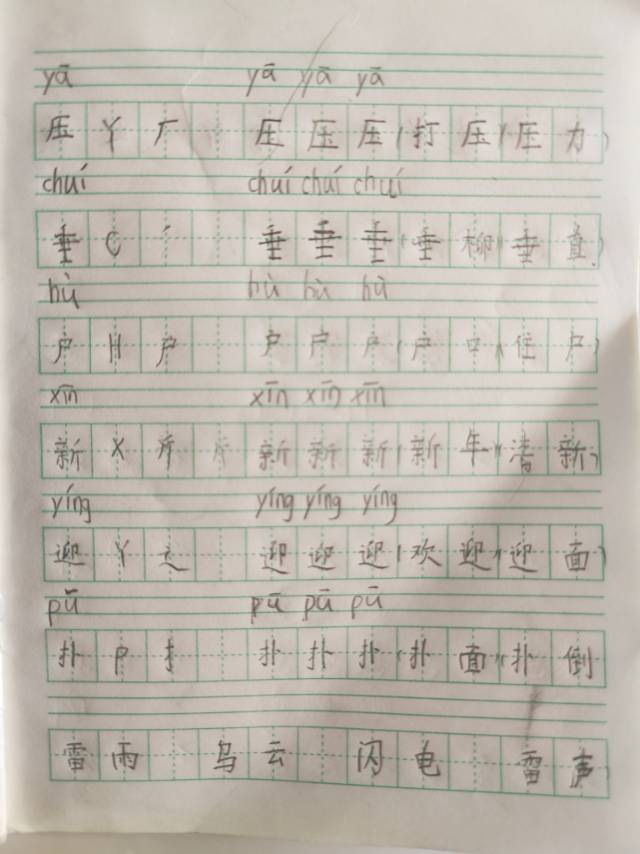 yā yā yā yā
压 丫 厂 压 压 压 (打 压)(压 力)
chuí chuí chuí chuí
垂 C ノ 垂 垂 垂 (垂 柳)(垂 直)
hù hù hù hù
户 H 户 户 户 户 (户 口)(住 户)
xīn xīn xīn xīn
新 X 斤 斤 新 新 新 (新 年)(清 新)
yíng yíng yíng yíng
迎 丫 辶 迎 迎 迎 (欢 迎)(迎 面)
pū pū pū pū
扑 P 扌 扑 扑 扑 (扑 面)(扑 倒
雷 雨 乌 云 闪 电 雷 声